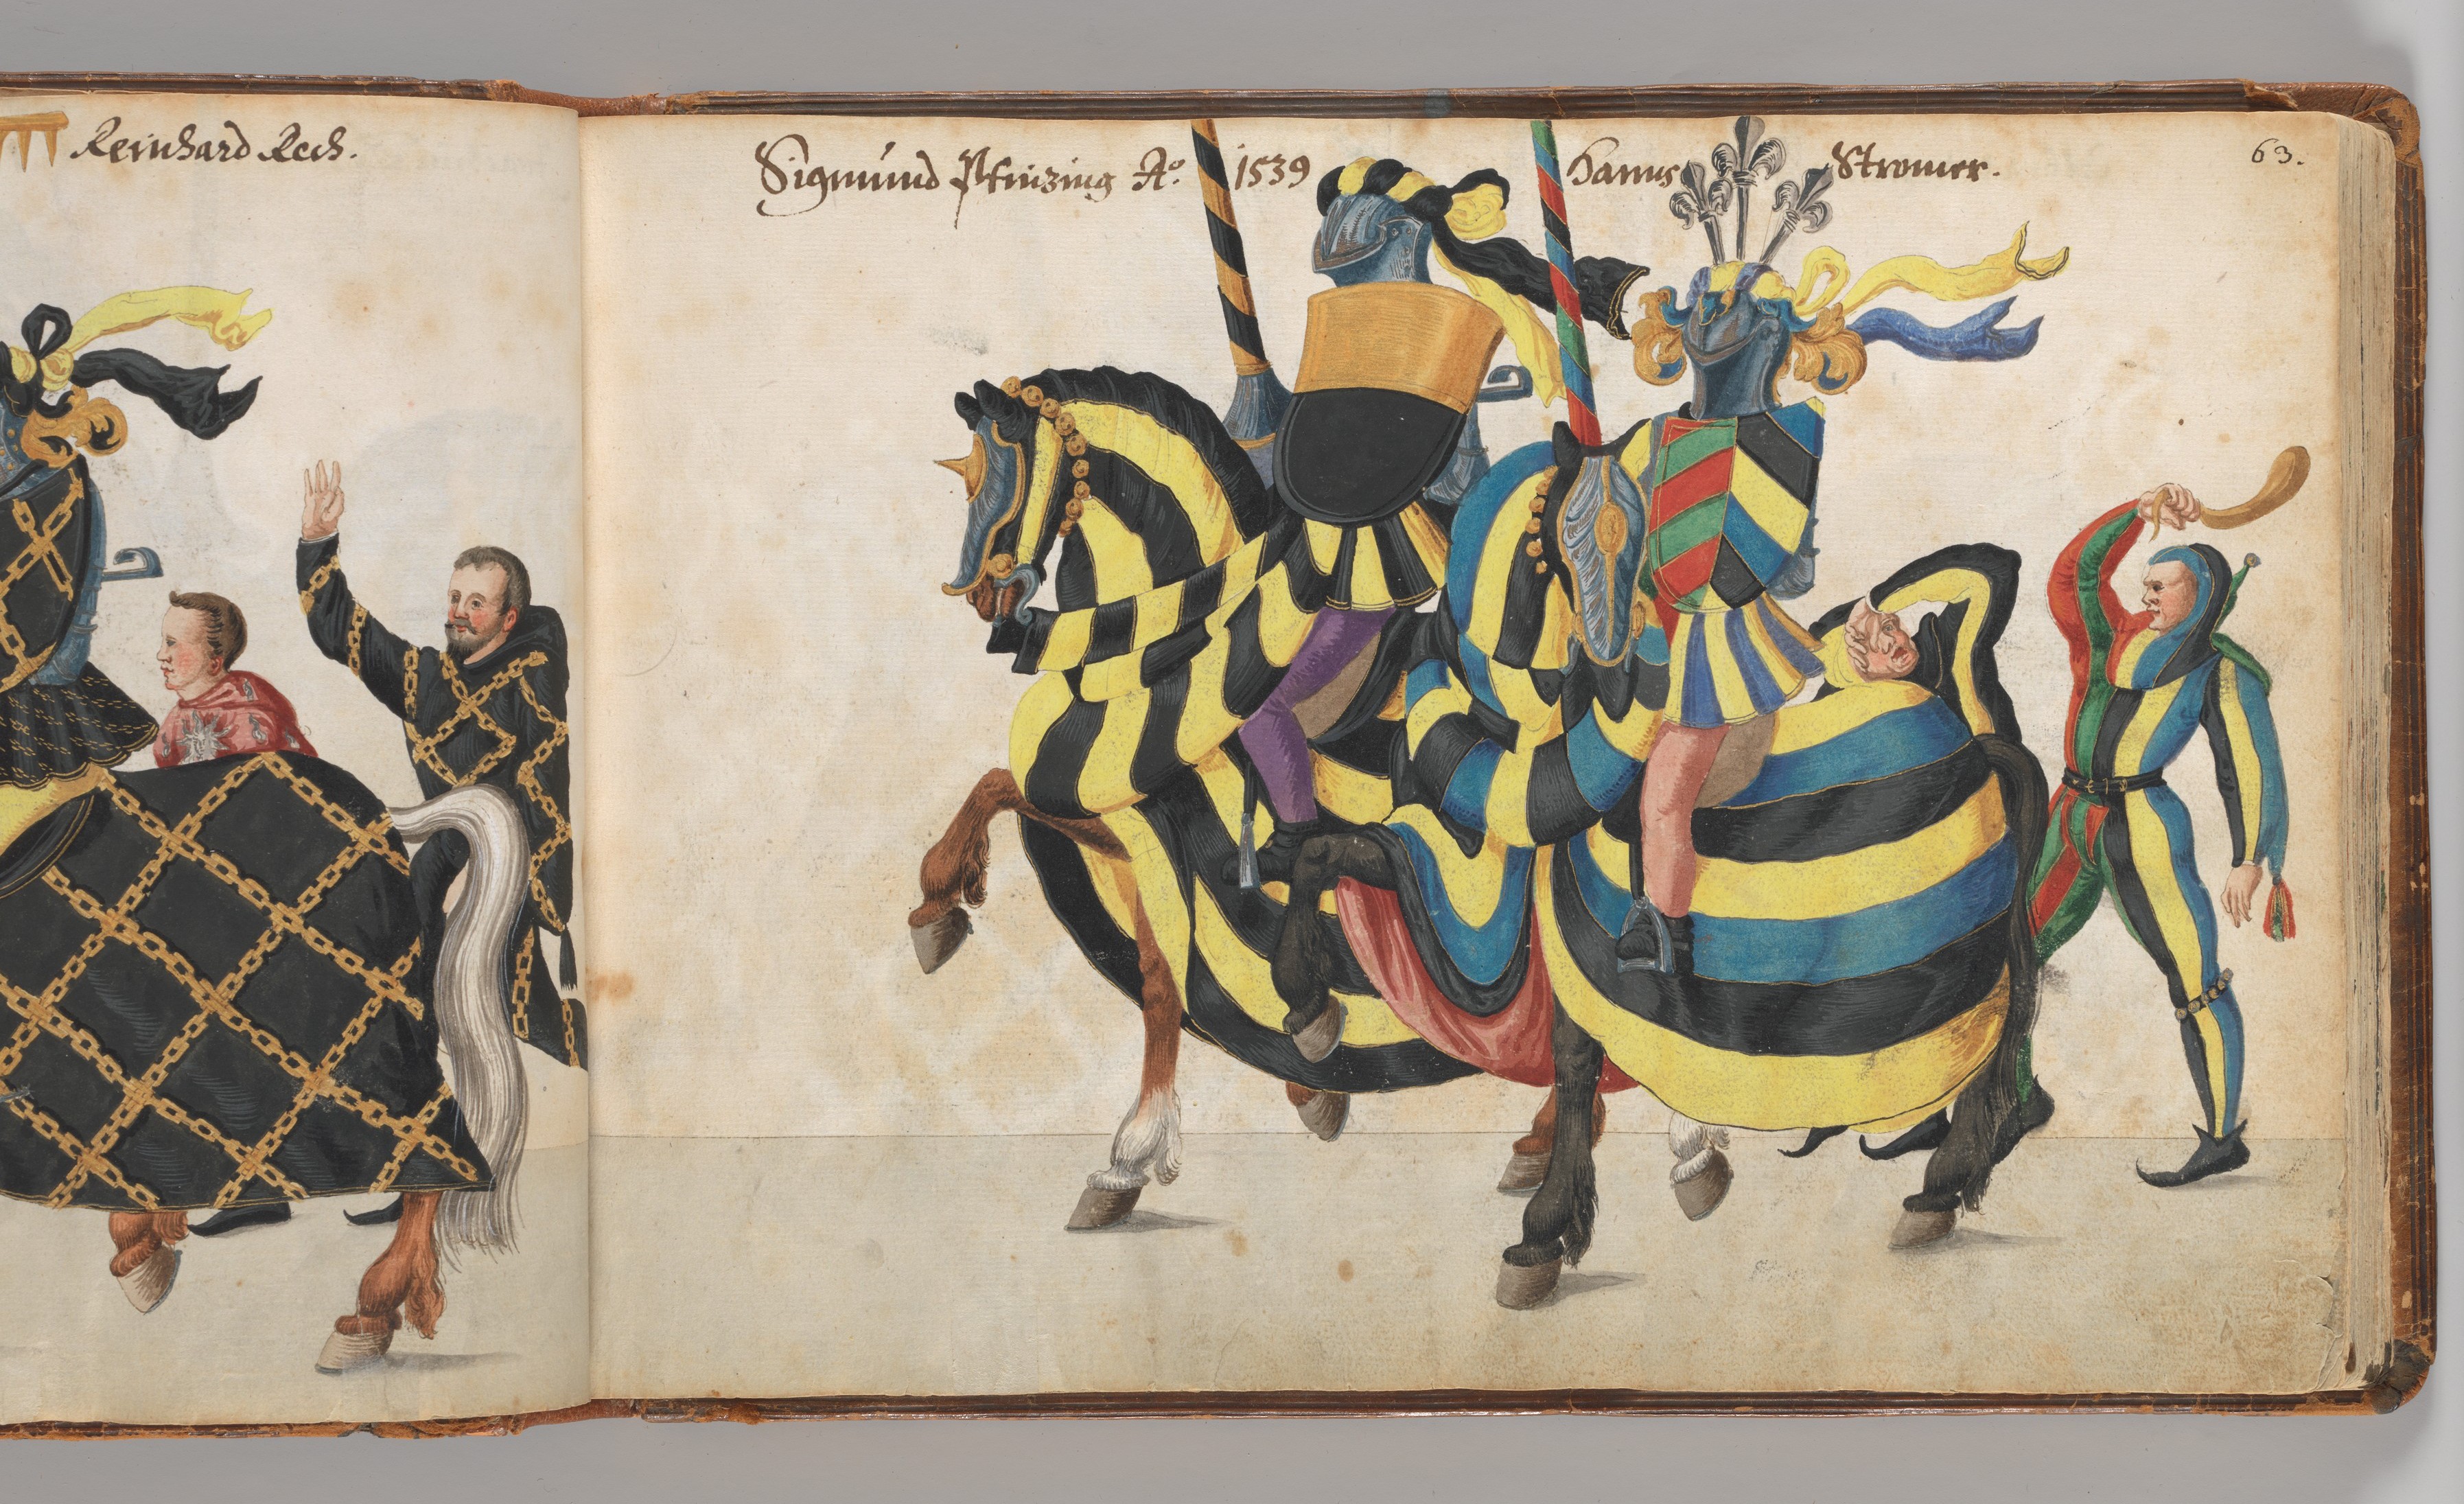 Reinhard Rech.
Sigmúnd Pfinzing Aº. 1539
Hanns Stromer.
63.